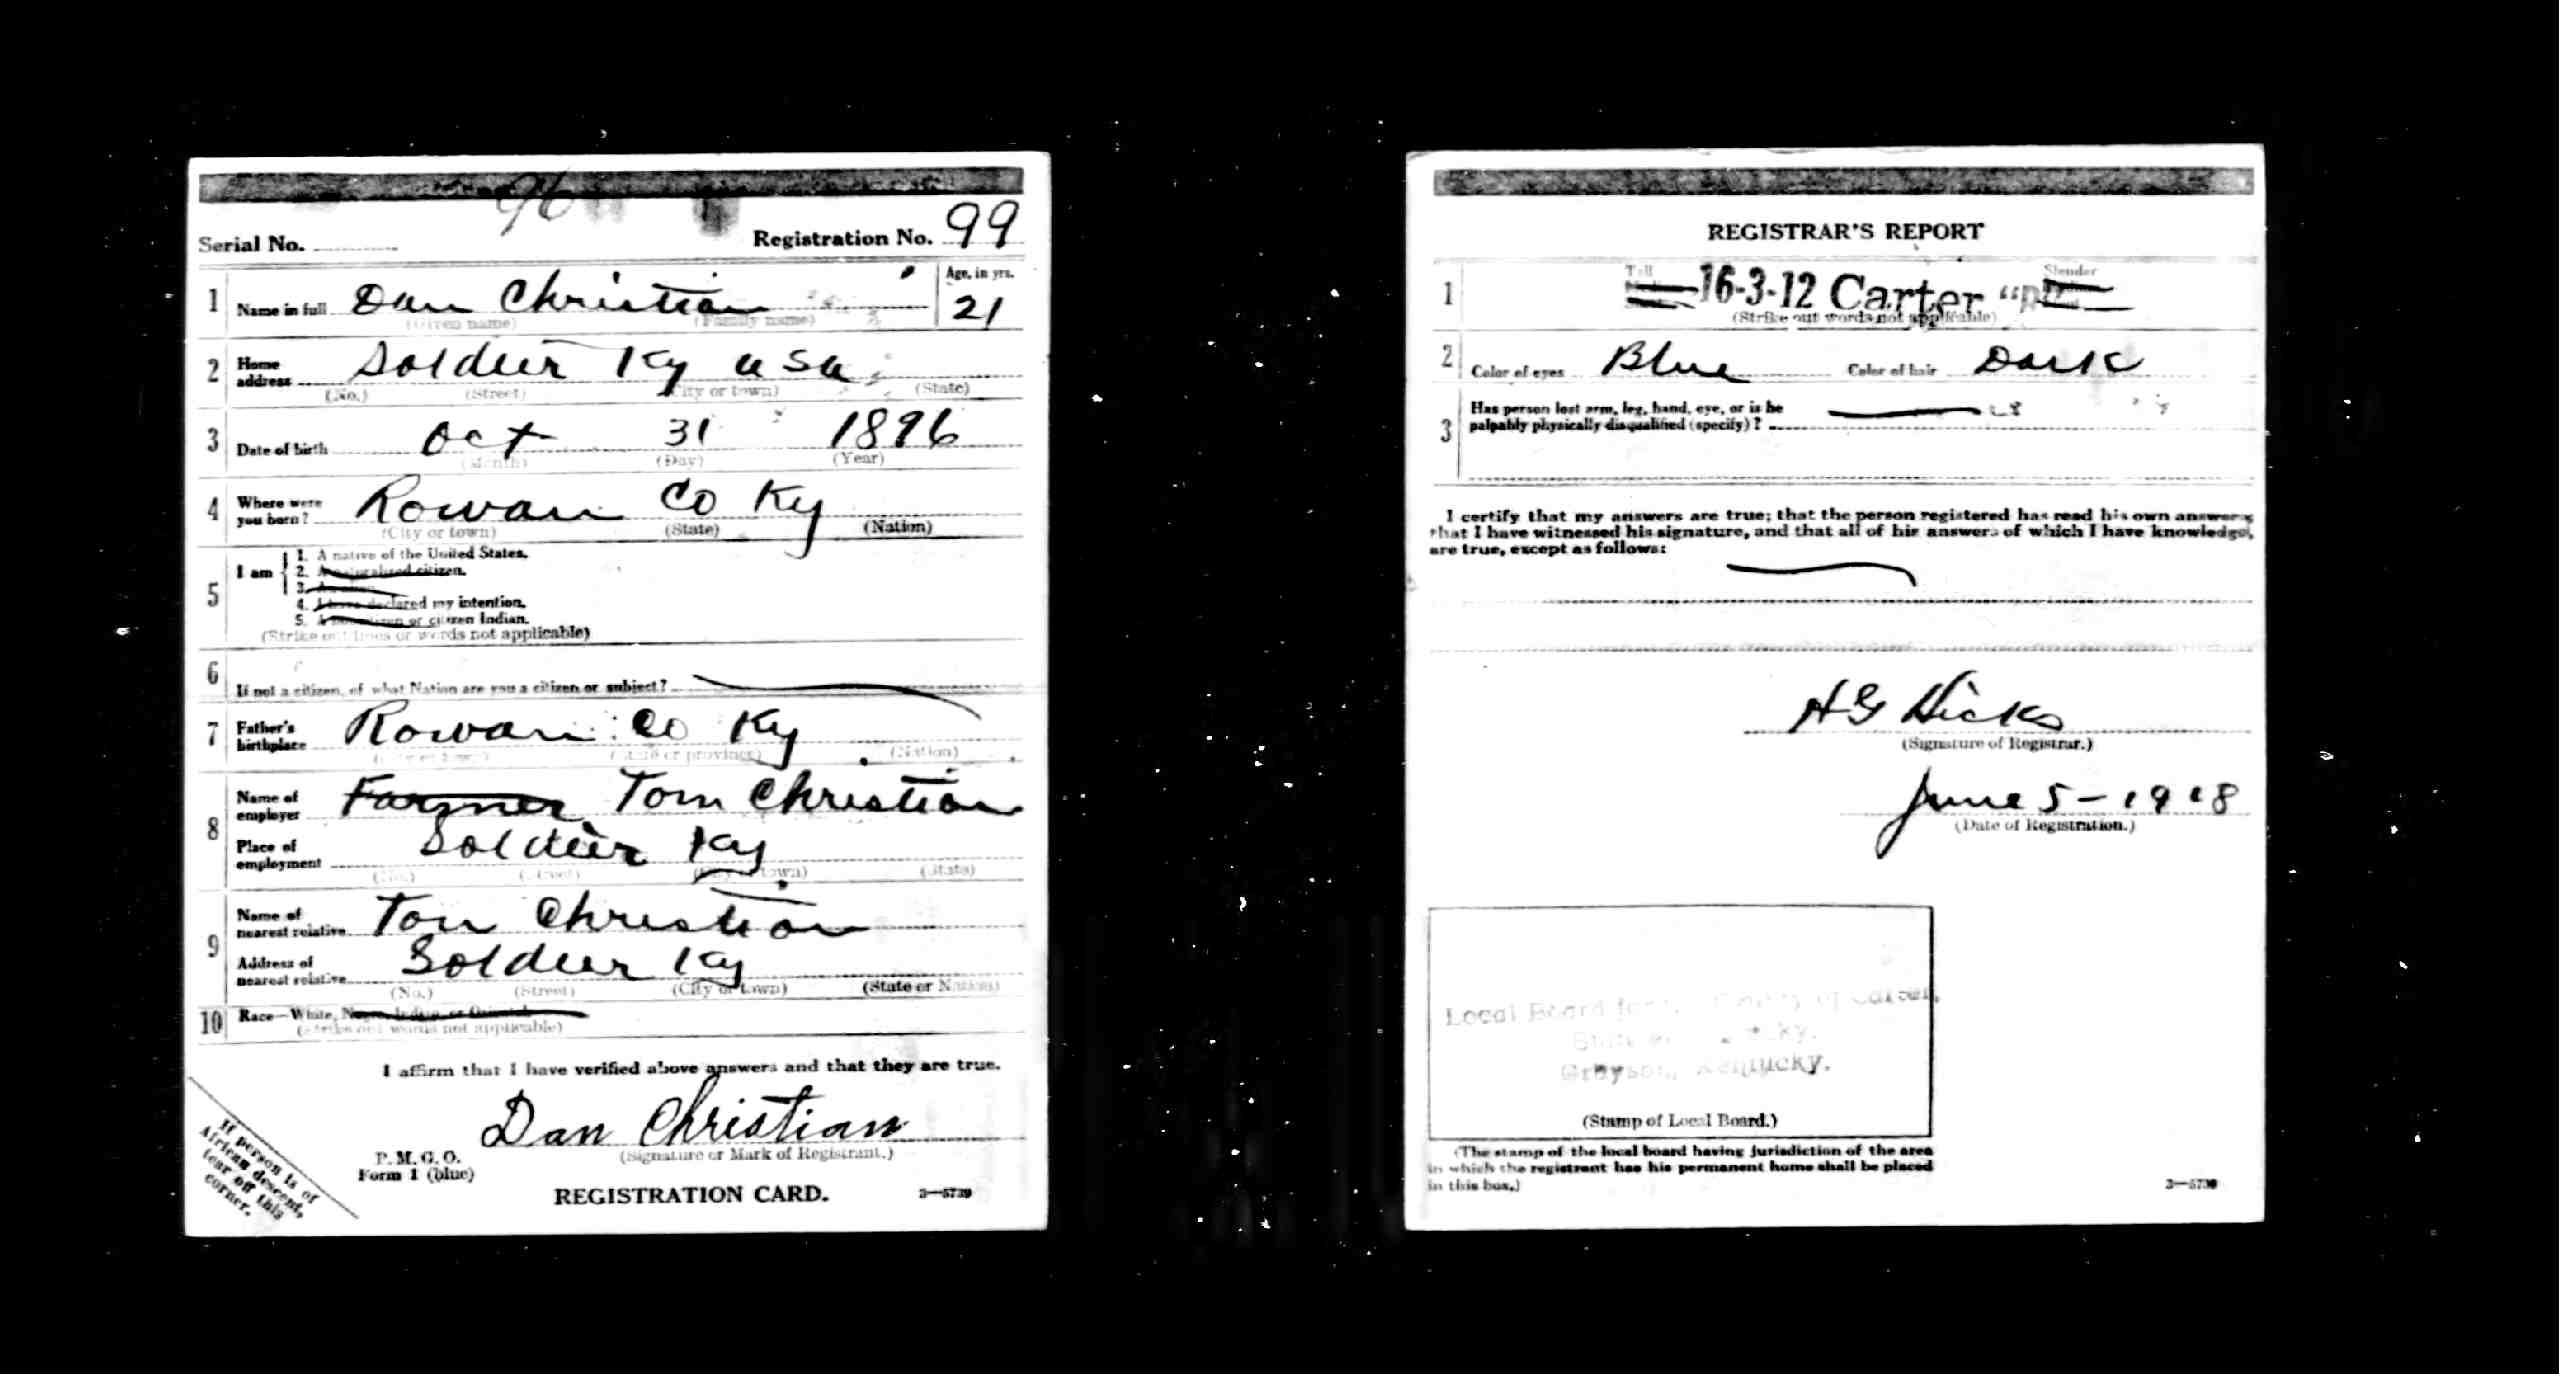 96
Serial No.
Registration No. 99
1 Name in full Dan Christian
(Given name) (Family name)
Age, in yrs.
21
2 Home address Soldier Ky USA
(No.) (Street) (City or town) (State)
3 Date of birth Oct 31 1896
(Month) (Day) (Year)
4 Where were you born? Rowan Co Ky
(City or town) (State) (Nation)
5 I am
1. A native of the United States.
2. A naturalized citizen.
3.
4. I have declared my intention.
5. citizen or citizen Indian.
(Strike out lines or words not applicable)
6 If not a citizen, of what Nation are you a citizen or subject?
7 Father's birthplace Rowan Co Ky
(City or town) (State or province) (Nation)
8 Name of employer Farmer Tom Christian
Place of employment Soldier Ky
(No.) (Street) (City or town) (State)
9 Name of nearest relative Tom Christian
Address of nearest relative Soldier Ky
(No.) (Street) (City or town) (State or Nation)
10 Race—White, Negro, Indian, or Oriental
(Strike out words not applicable)
I affirm that I have verified above answers and that they are true.
Dan Christian
(Signature or Mark of Registrant.)
P. M. G. O.
Form 1 (blue)
REGISTRATION CARD.
3—5739
If person is of
African descent,
tear off this
corner.
REGISTRAR'S REPORT
1 Tall Slender
16-3-12 Carter
(Strike out words not applicable)
2 Color of eyes Blue Color of hair Dark
3 Has person lost arm, leg, hand, eye, or is he
palpably physically disqualified (specify)?
I certify that my answers are true; that the person registered has read his own answers
that I have witnessed his signature, and that all of his answers of which I have knowledge,
are true, except as follows:
H G Hicks
(Signature of Registrar.)
June 5-1918
(Date of Registration.)
Local Board for County of Carter,
State of Ky.
Grayson, Kentucky.
(Stamp of Local Board.)
(The stamp of the local board having jurisdiction of the area
in which the registrant has his permanent home shall be placed
in this box.)
3—5739